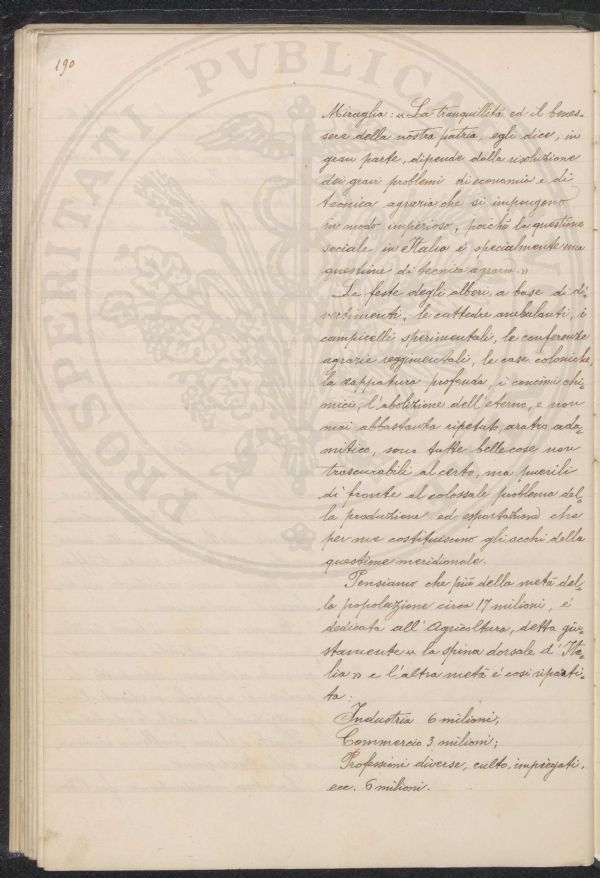 190
PROSPERITATI PVBLICAE
Miraglia: « La tranquillità ed il benes-
sere della nostra patria, egli dice, in
gran parte, dipende dalla risoluzione
dei gravi problemi di economia e di
tecnica agraria che si impongono
in modo imperioso, poichè la questione
sociale in Italia è specialmente una
questione di tecnica agraria »
Le feste degli alberi, a base di di-
vertimenti, le cattedre ambulanti, i
campicelli sperimentali, le conferenze
agrarie reggimentali, le case coloniche,
la zappatura profonda, i concimi chi-
mici, l'abolizione dell'eterno, e non
mai abbastanza ripetuto, aratro ada-
mitico, sono tutte belle cose non
trascurabili al certo, ma puerili
di fronte al colossale problema del-
la produzione ed esportazione che
per me costituiscono gli occhi della
questione meridionale.
Pensiamo che più della metà del-
la popolazione circa 17 milioni, è
dedicata all'Agricoltura, detta giu-
stamente « la spina dorsale d'Ita-
lia » e l'altra metà è così riparti-
ta:
Industria 6 milioni;
Commercio 3 milioni;
Professioni diverse, culto, impiegati,
ecc. 6 milioni.